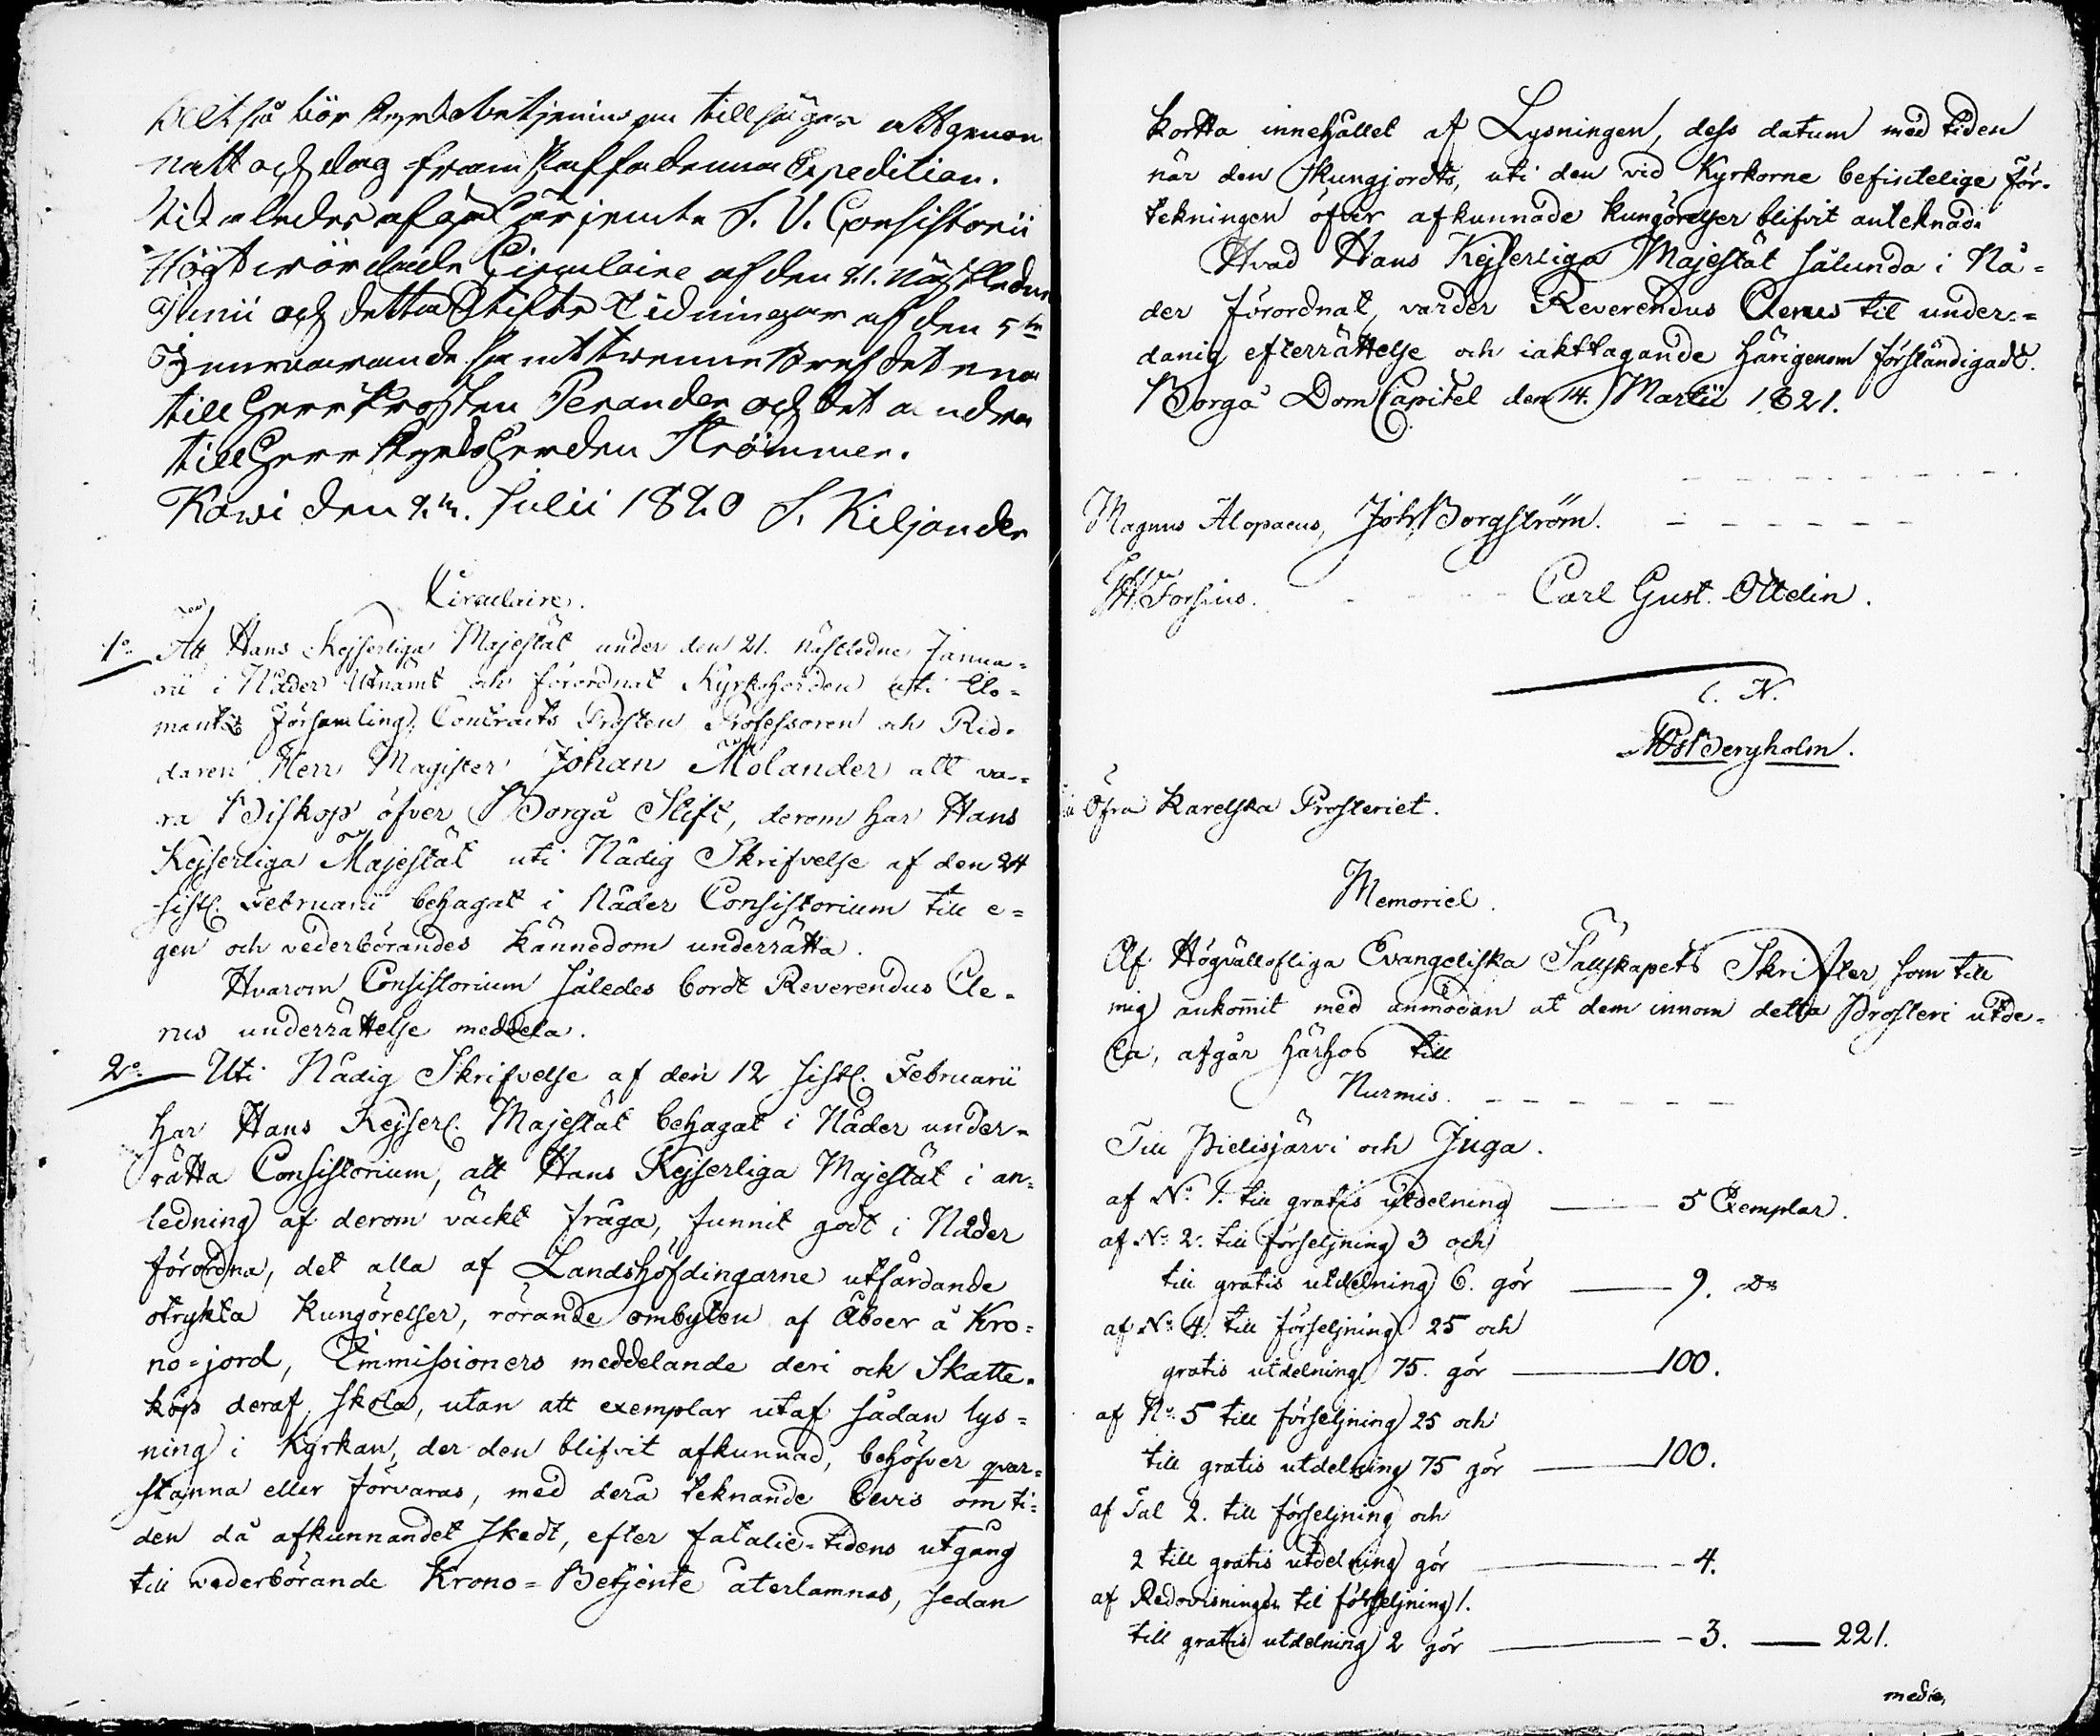 Altså bör Kyrkobetjeningen tillsägas att genom
natt och dag framskaffa denna Expedition.
Vidare ledes afgå härjemte S. V. Consistorii
Högtvördade Circulaire af den 21. Nästledne
Junii och detta Stifts Tidningar af den 5te
Innevarande samt tvenne Bref det ena
till Herr Prosten Perander och det andra
till Herr Kyrkoherden Strömmer.
Kowi den 9de. Julii 1820 S. Kiljander
Circulaire.
1o. Att Hans Kejserliga Majestät under den 21. nästledne Janua=
rii i Nåder Utnämt och förordnat Kyrkoherden uti Elo=
mants Församling, Contracts Prosten Professoren och Rid=
daren Herr Magister Johan Molander att va=
ra Biskop öfver Borgå Stift, derom har Hans
Kejserliga Majestät uti Nådig Skrifvelse af den 24
sistl. Februarii behagat i Nåder Consistorium till e=
gen och vederbörandes kännedom underrätta.
Hvarom Consistorium således bordt Reverendus Cle=
rus underrättelse meddela.
2o. Uti Nådig Skrifvelse af den 12 sistl. Februarii
har Hans Kejserl. Majestät behagat i Nåder under=
rätta Consistorium, att Hans Kejserliga Majestät i an=
ledning af derom väckt fråga, funnit godt i Nåder
förordna, det alla af Landshöfdingarne utfärdande
otrykta kungörelser, rörande ombyten af Åboer å Kro=
no=jord, Immissioners meddelande deri och Skatte=
köp deraf, skola, utan att exemplar utaf sådan lys=
ning i Kyrkan, der den blifvit afkunnad, behöfver qvar=
stanna eller förvaras, med derå teknande bevis om ti=
den då afkunnandet skedt, efter fatalie=tidens utgång
till vederbörande Krono=Betjente återlämnas, sedan
kortta innehållet af Lysningen, dess datum med tiden
när den kungjordts, uti den vid Kyrkorne befintelige för=
tekningen öfver afkunnade kungörelser blifvit anteknad.
Hvad Hans Kejserliga Majestät sålunda i Nå=
der förordnat, varder Reverendus Clerus til under=
danig efterrättelse och iakttagande härigenom förständigadt.
Borgå DomCapitel den 14. Martii 1821.
Magnus Alopaeus, Joh. Borgström.
Forsius. Carl Gust. Ottelin.
C. N.
Bergholm.
Öfra Karelska Prosteriet.
Memorial.
Af Högvällofliga Evangeliska Sällskapets Skrifter, som till
mig ankommit med anmodan at dem innom detta Prosteri utde=
la, afgår härhos till
Nurmis.
Till Pielisjärvi och Juga.
af No. 1. till gratis utdelning 5 Exemplar.
af No. 2. till förseljning 3 och
till gratis utdelning 6. gör 9. Do
af No. 4. till förseljning 25 och
gratis utdelning 75. gör 100.
af No. 5 till förseljning 25 och
till gratis utdelning 75 gör 100.
af Tal 2. till förseljning och
2 till gratis utdelning gör 4.
af Redovisningen til förseljning 1.
till gratis utdelning 2 gör 3. 221.